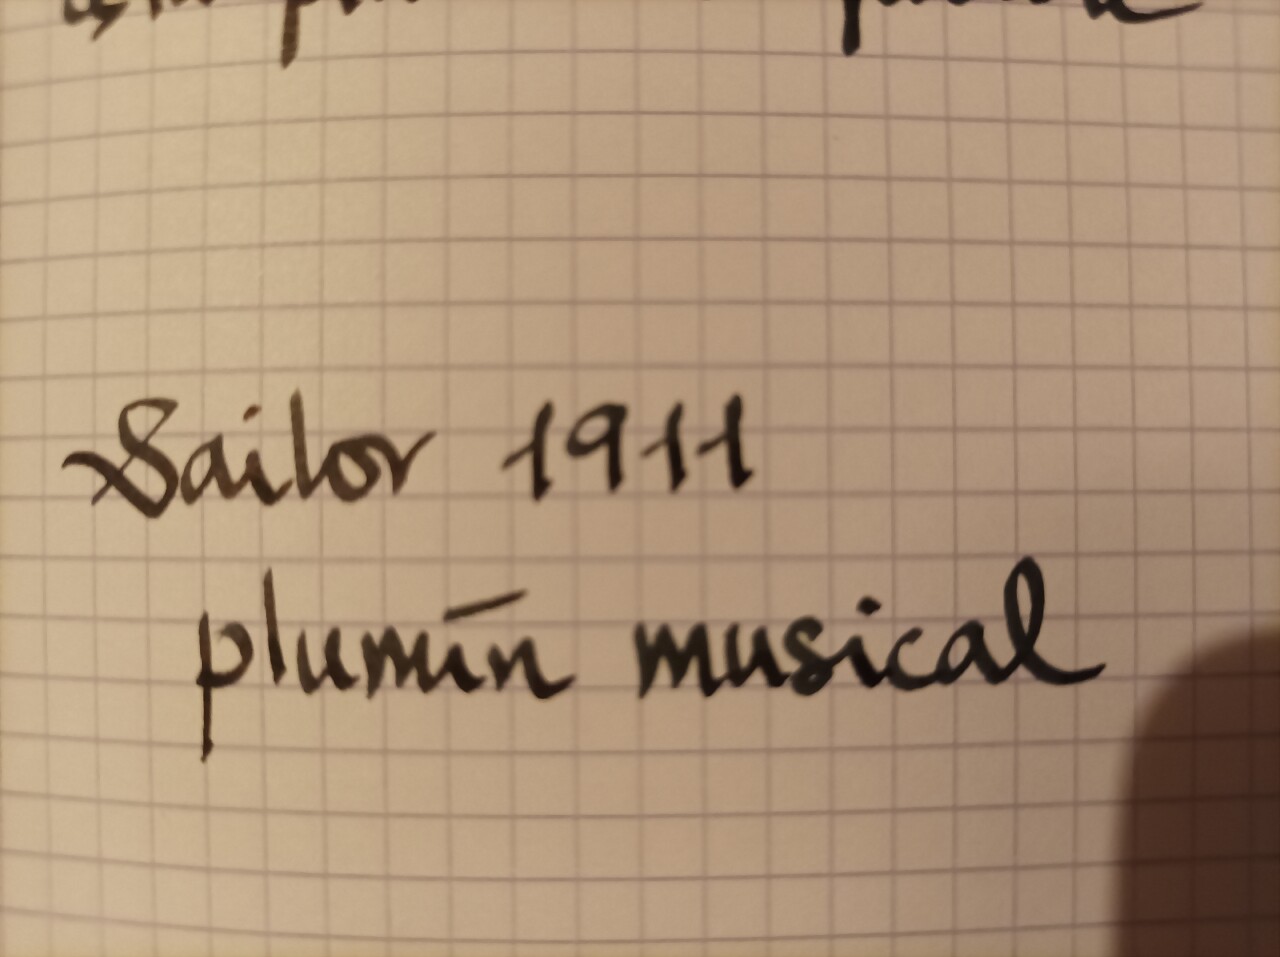 Sailor 1911
plumín musical